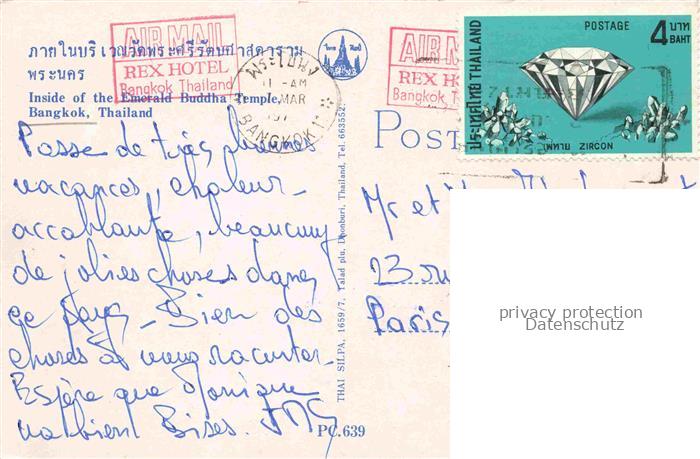 ภายในบริเวณวัดพระศรีรัตนศาสดาราม
พระนคร
Inside of the Emerald Buddha Temple,
Bangkok, Thailand
AIR MAIL
REX HOTEL
Bangkok Thailand
พระโขนง
11 -AM
MAR
BANGKOK
AIR MAIL
REX H
Bangkok T
POSTAGE
4 บาท
BAHT
ประเทศไทย THAILAND
เพทาย ZIRCON
Passe de très bonnes
vacances, chaleur
accablante, beaucoup
de jolies choses dans
ce pays - Bien des
choses à vous raconter.
Espère que Monique
va bien Bises.
THAI SILPA, 1659/7, Talad plu, Dhonburi, Thailand, Tel. 663552.
PC.639
POST
Mr et
23 ru
Paris
privacy protection
Datenschutz